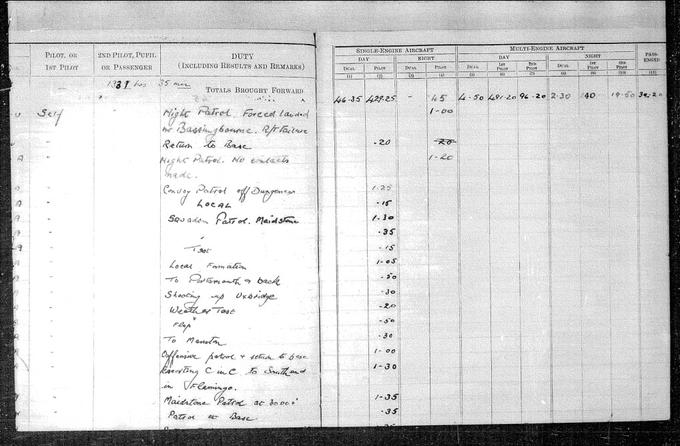 PILOT, OR 1ST PILOT
2ND PILOT, PUPIL OR PASSENGER
DUTY (INCLUDING RESULTS AND REMARKS)
SINGLE-ENGINE AIRCRAFT
MULTI-ENGINE AIRCRAFT
PASS-ENGER
DAY NIGHT DAY NIGHT
DUAL PILOT DUAL PILOT DUAL 1ST PILOT 2ND PILOT DUAL 1ST PILOT 2ND PILOT
(1) (2) (3) (4) (5) (6) (7) (8) (9) (10) (11)
1331 hrs 35 min
TOTALS BROUGHT FORWARD
46.35 429.25 - .45 4.50 491.20 96.20 2.30 .40 19.50 32.20
Self Night Patrol. Forced landed 1-00
nr Bassingbourne. R/T failure
Return to Base .20 .20
Night Patrol. No contacts 1-20
made.
Convoy Patrol off Dungeness 1.25
LOCAL .15
Squadron Patrol. Maidstone 1.30
.35
Test .15
Local Formation 1-05
To Portsmouth & back .50
Shooting up Uxbridge .30
Weather Test .20
"Flap" .50
To Manston .30
Offensive patrol & return to base 1-00
Escorting C in C to Southend 1-30
in Flamingo.
Maidstone Patrol at 30000' 1-35
Patrol at Base .35